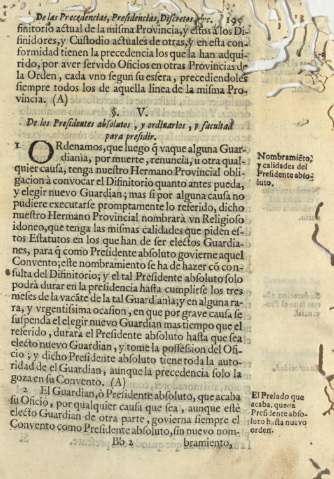 De las Precedencias, Presidencias, Discretos &c. 195
finitorio actual de la misma Provincia, y estos à los Di-
finidores, y Custodio actuales de otras, y en esta con-
formidad tienen la precedencia los que la han adqui-
rido, por aver servido Oficios en otras Provincias de
la Orden, cada vno segun su esfera, precediendoles
siempre todos los de aquella linea de la misma Pro-
vincia. (A)
§. V.
De los Presidentes absolutos, y ordinarios, y facultad
para presidir.
1 ORdenamos, que luego q̃ vaque alguna Guar-
diania, por muerte, renuncia, ù otra qual-
quier causa, tenga nuestro Hermano Provincial obli-
gacion à convocar el Difinitorio quanto antes pueda,
y elegir nuevo Guardian; mas si por alguna causa no
pudiere executarse promptamente lo referido, dicho
nuestro Hermano Provincial nombrarà vn Religioso
idoneo, que tenga las mismas calidades que piden es-
tos Estatutos en los que han de ser electos Guardia-
nes, para q̃ como Presidente absoluto govierne aquel
Convento; este nombramiento se ha de hazer cõ con-
sulta del Difinitorio; y el tal Presidente absoluto solo
podrà durar en la presidencia hasta cumplirse los tres
meses de la vacãte de la tal Guardiania; y en alguna ra-
ra, y vrgentissima ocasion, en que por grave causa se
suspenda el elegir nuevo Guardian mas tiempo que el
referido, durarà el Presidente absoluto hasta que sea
electo nuevo Guardian, y tome la possession del Ofi-
cio; y dicho Presidente absoluto tiene toda la auto-
ridad de el Guardian, aunque la precedencia solo la
goza en su Convento. (A)
2 El Guardian, ò Presidente absoluto, que acaba
su Oficio, por qualquier causa que sea, aunque este
electo Guardian de otra parte, govierna siempre el
Convento como Presidente absoluto, sin nuevo nom-
Bb 2 bramiento,
Nombramiẽto,
y calidades del
Presidente abso-
luto.
El Prelado que
acaba, queda
Presidente abso-
luto hasta nuevo
orden.